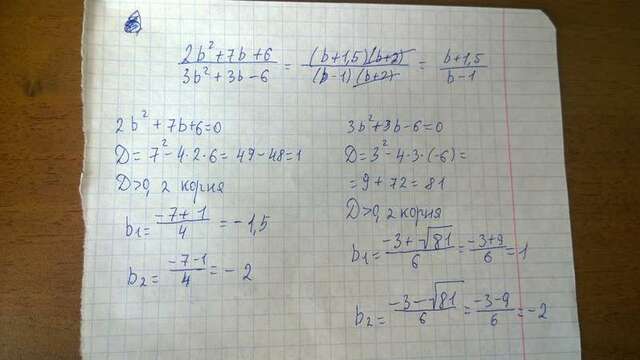 (2b²+7b+6)/(3b²+3b-6) = ((b+1,5)(b+2))/((b-1)(b+2)) = (b+1,5)/(b-1)
2b²+7b+6=0
D=7²-4·2·6=49-48=1
D>0, 2 корня
b₁=(-7+1)/4=-1,5
b₂=(-7-1)/4=-2
3b²+3b-6=0
D=3²-4·3·(-6)=
=9+72=81
D>0, 2 корня
b₁=(-3+√81)/6=(-3+9)/6=1
b₂=(-3-√81)/6=(-3-9)/6=-2